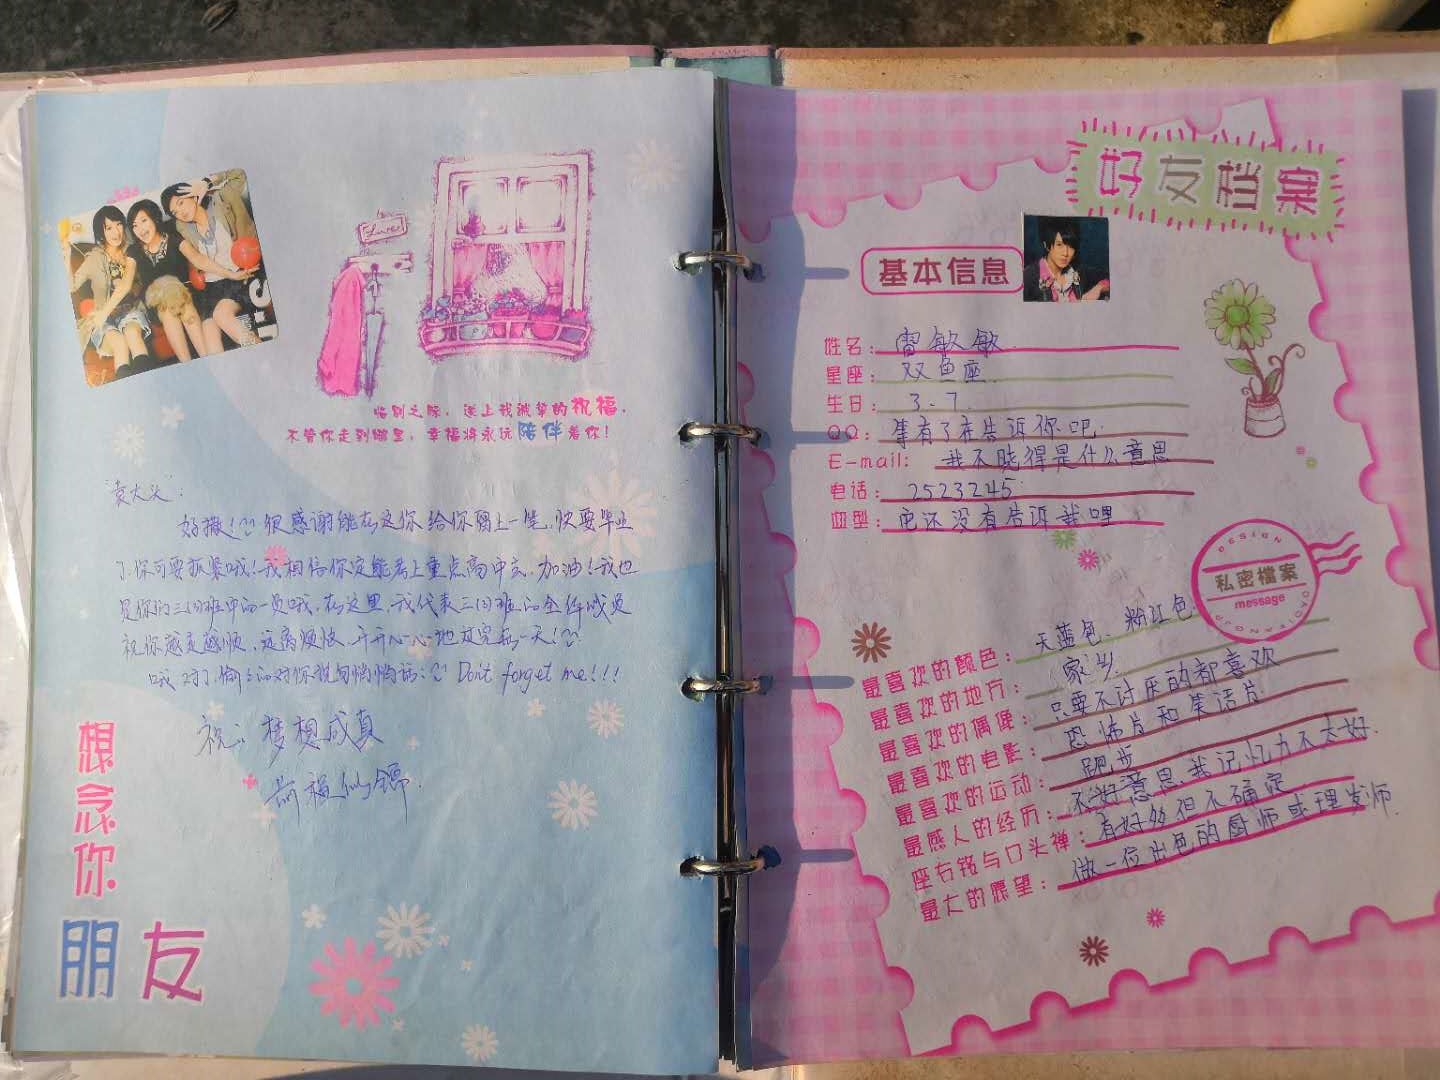 S.H.E
Love
临别之际，送上我诚挚的祝福，
不管你走到哪里，幸福将永远陪伴着你！
"袁大头"：
好撒！很感谢能在这你给你留上一笔，快要毕业
了，你可要抓紧哦！我相信你定能考上重点高中去，加油！我也
是你们三(3)班中的一员哦，在这里，我代表三(3)班的全体成员
祝你越走越顺，远离烦恼，开开心心地过完每一天！
哦对了，偷偷的对你说句悄悄话：Don't forget me!!!
祝：梦想成真
前程似锦.
想念你
朋友
好友档案
基本信息
姓名：雷敏敏
星座：双鱼座.
生日：3.7.
QQ：等有了在告诉你吧.
E-mail：我不晓得是什么意思
电话：2523245
血型：它还没有告诉我哩
DESIGN
私密档案
message
最喜欢的颜色：天蓝色、粉红色.
最喜欢的地方：家乡.
最喜欢的偶像：只要不讨厌的都喜欢
最喜欢的电影：恐怖片和笑话片.
最喜欢的运动：跑步
最感人的经历：不好意思，我记忆力不太好.
座右铭与口头禅：有好多但不确定
最大的愿望：做一位出色的厨师或理发师.